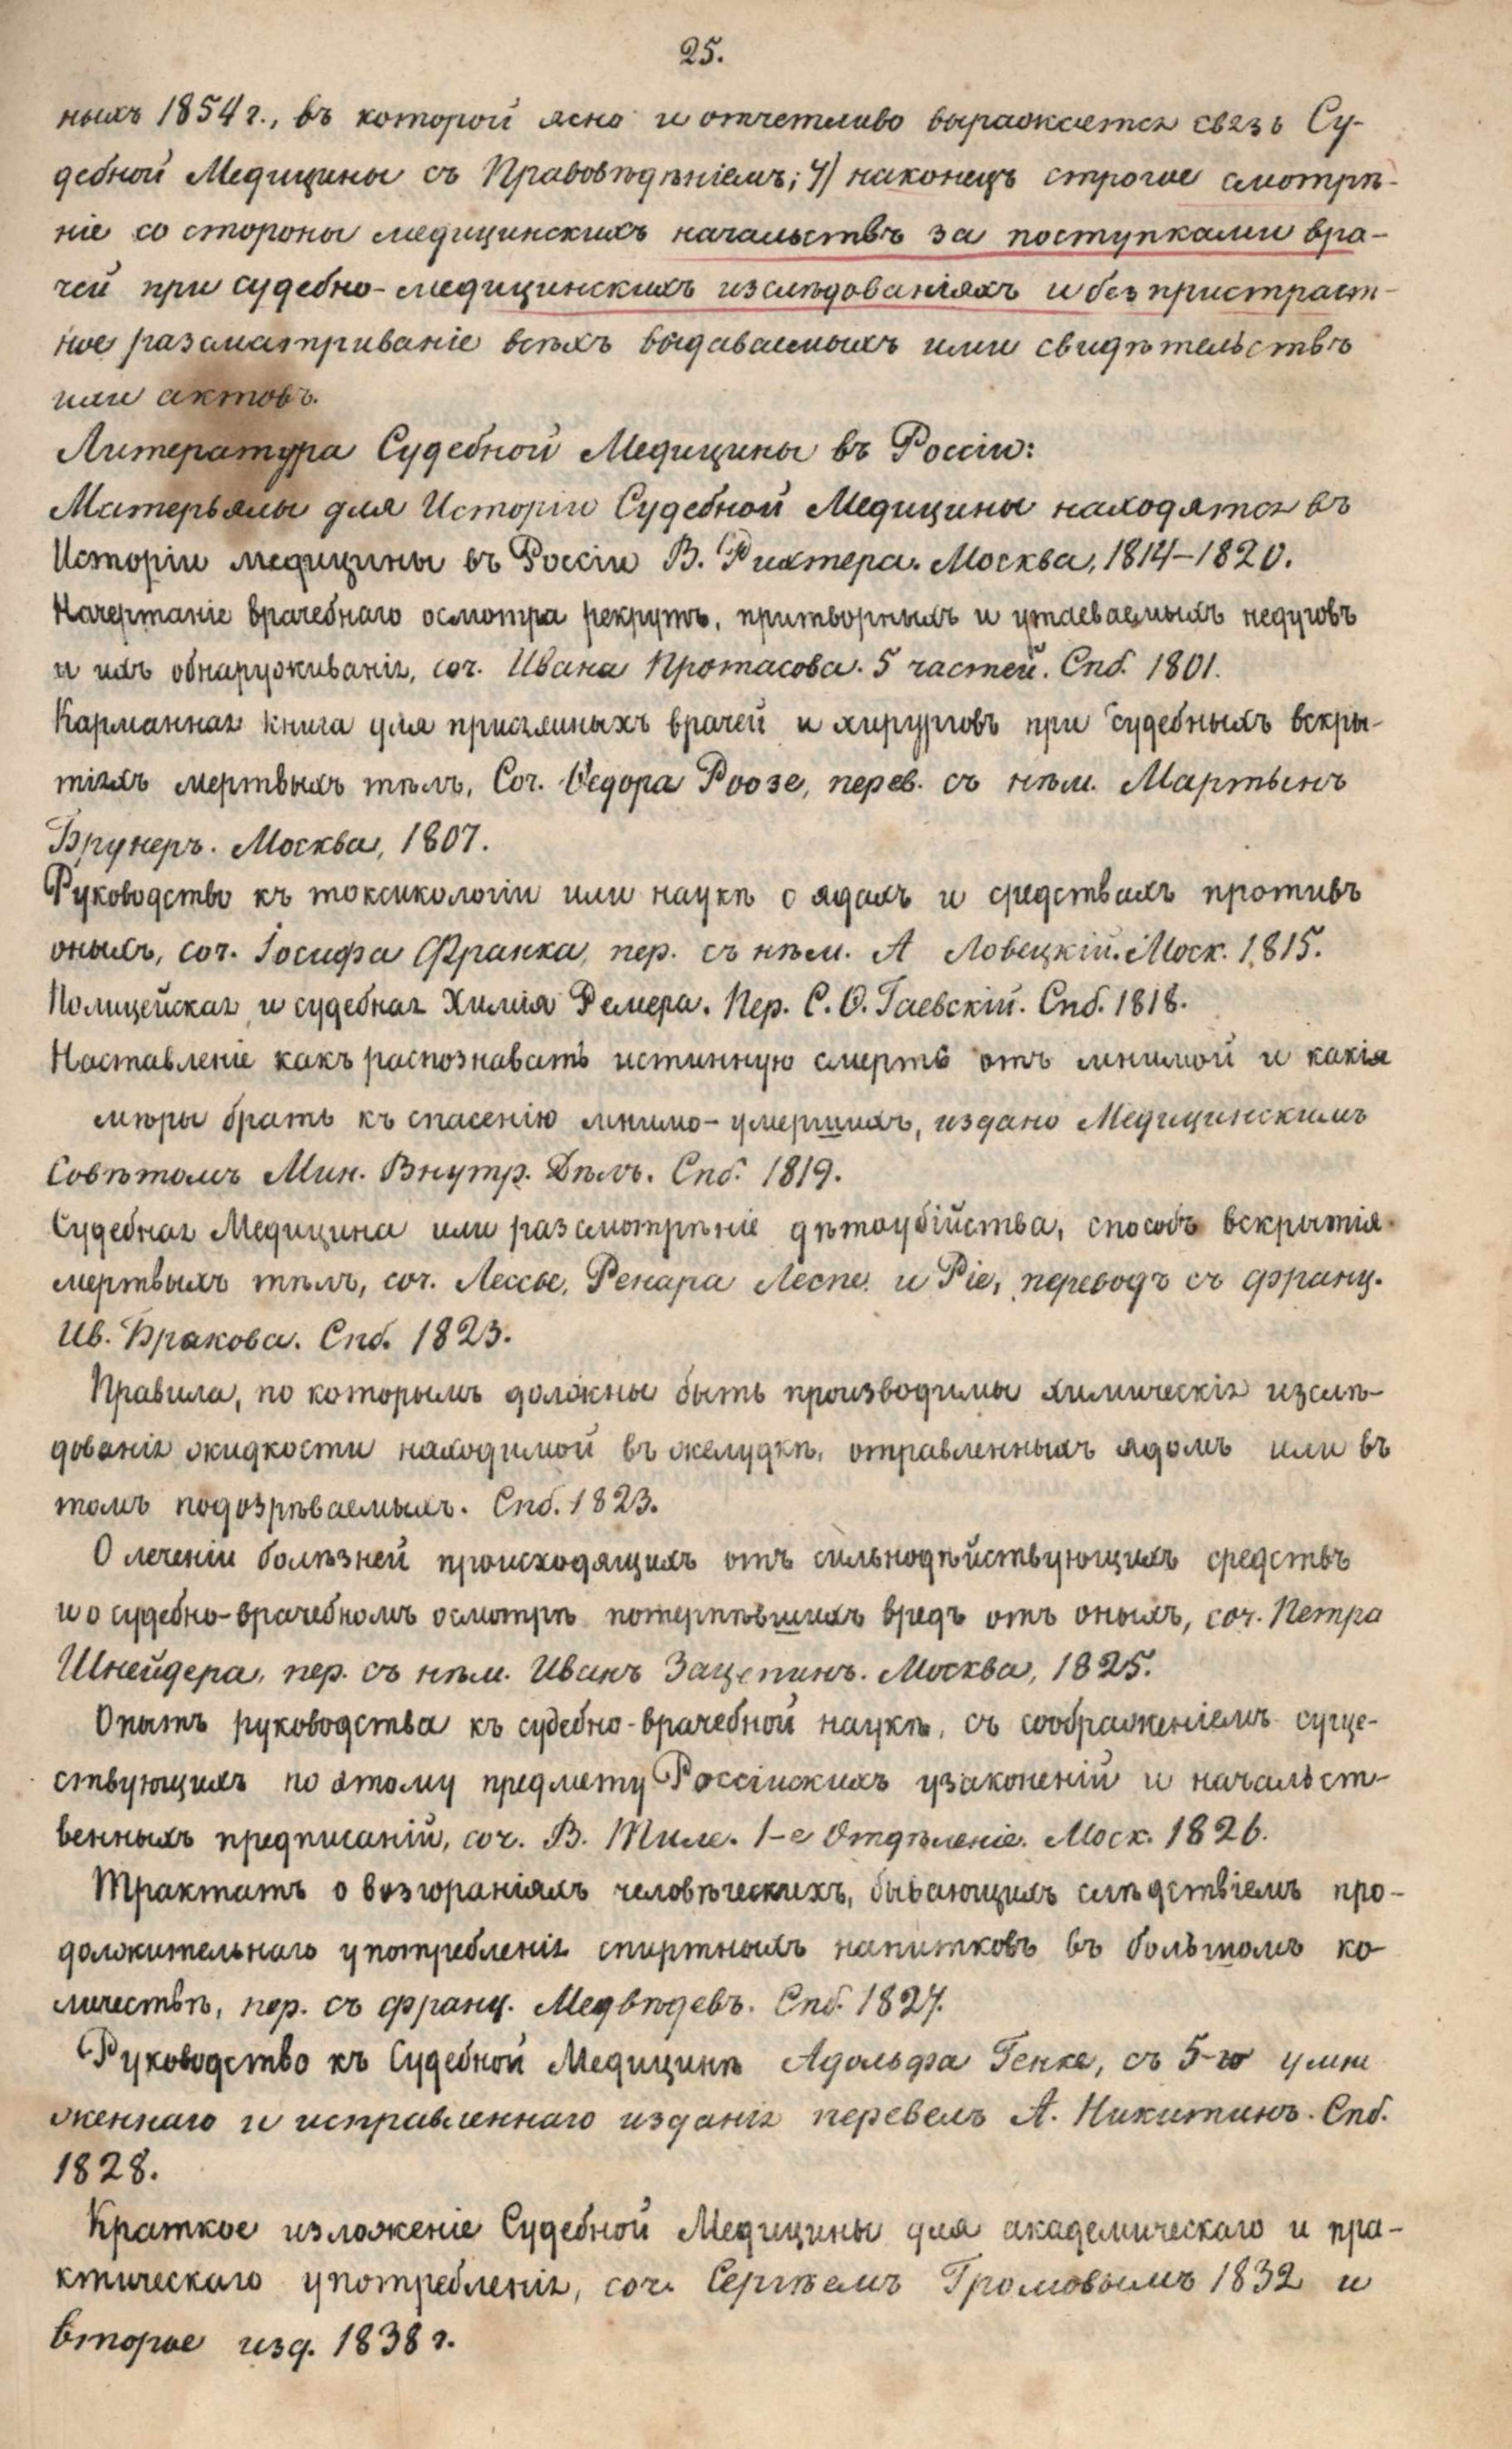 25.
ныхъ 1854 г., въ которой ясно и отчетливо выражается связь Су-
дебной Медицины съ Правовѣдѣніемъ; 4) наконецъ строгое смотрѣ-
ніе со стороны медицинскихъ начальствъ за поступками вра-
чей при судебно-медицинскихъ изслѣдованіяхъ и безпристраст-
ное разсматриваніе всѣхъ выдаваемыхъ ими свидѣтельствъ
или актовъ.
Литература Судебной Медицины въ Россіи:
Матерьялы для Исторіи Судебной Медицины находятся въ
Исторіи медицины въ Россіи В. Рихтера. Москва, 1814-1820.
Начертаніе врачебнаго осмотра рекрутъ, притворныхъ и утаеваемыхъ недуговъ
и ихъ обнаруживанія, соч. Ивана Протасова. 5 частей. Спб. 1801.
Карманная книга для присяжныхъ врачей и хирурговъ при судебныхъ вскры-
тіяхъ мертвыхъ тѣлъ, Соч. Ѳедора Роозе, перев. съ нѣм. Мартынъ
Брунеръ. Москва, 1807.
Руководство къ токсикологіи или наукѣ о ядахъ и средствахъ противъ
оныхъ, соч. Іосифа Франка, пер. съ нѣм. А Ловецкій. Моск. 1815.
Полицейская и судебная Химія Ремера. Пер. С. Ѳ. Гаевскій. Спб. 1818.
Наставленіе какъ распознавать истинную смерть отъ мнимой и какія
мѣры брать къ спасенію мнимо-умершихъ, издано Медицинскимъ
Совѣтомъ Мин. Внутр. Дѣлъ. Спб. 1819.
Судебная Медицина или разсмотрѣніе дѣтоубійства, способъ вскрытія
мертвыхъ тѣлъ, соч. Лессье, Ренара Леспе и Ріе, переводъ съ франц.
Ив. Бракова. Спб. 1823.
Правила, по которымъ должны быть производимы химическія изслѣ-
дованія жидкости находимой въ желудкѣ, отравленныхъ ядомъ или въ
томъ подозрѣваемыхъ. Спб. 1823.
О леченіи болѣзней происходящихъ отъ сильнодѣйствующихъ средствъ
и о судебно-врачебномъ осмотрѣ потерпѣвшихъ вредъ отъ оныхъ, соч. Петра
Шнейдера, пер. съ нѣм. Иванъ Зацепинъ. Москва, 1825.
Опытъ руководства къ судебно-врачебной наукѣ, съ соображеніемъ суще-
ствующихъ по этому предмету Россійскихъ узаконеній и начальст-
венныхъ предписаній, соч. В. Тиле. 1-е Отдѣленіе. Моск. 1826.
Трактатъ о возгораніяхъ человѣческихъ, бывающихъ слѣдствіемъ про-
должительнаго употребленія спиртныхъ напитковъ въ большомъ ко-
личествѣ, пер. съ франц. Медвѣдевъ. Спб. 1827.
Руководство къ Судебной Медицинѣ Адольфа Генке, съ 5-го умно
женнаго и исправленнаго изданія перевелъ А. Никитинъ. Спб.
1828.
Краткое изложеніе Судебной Медицины для академическаго и пра-
ктическаго употребленія, соч. Сергѣемъ Громовымъ 1832 и
второе изд. 1838 г.